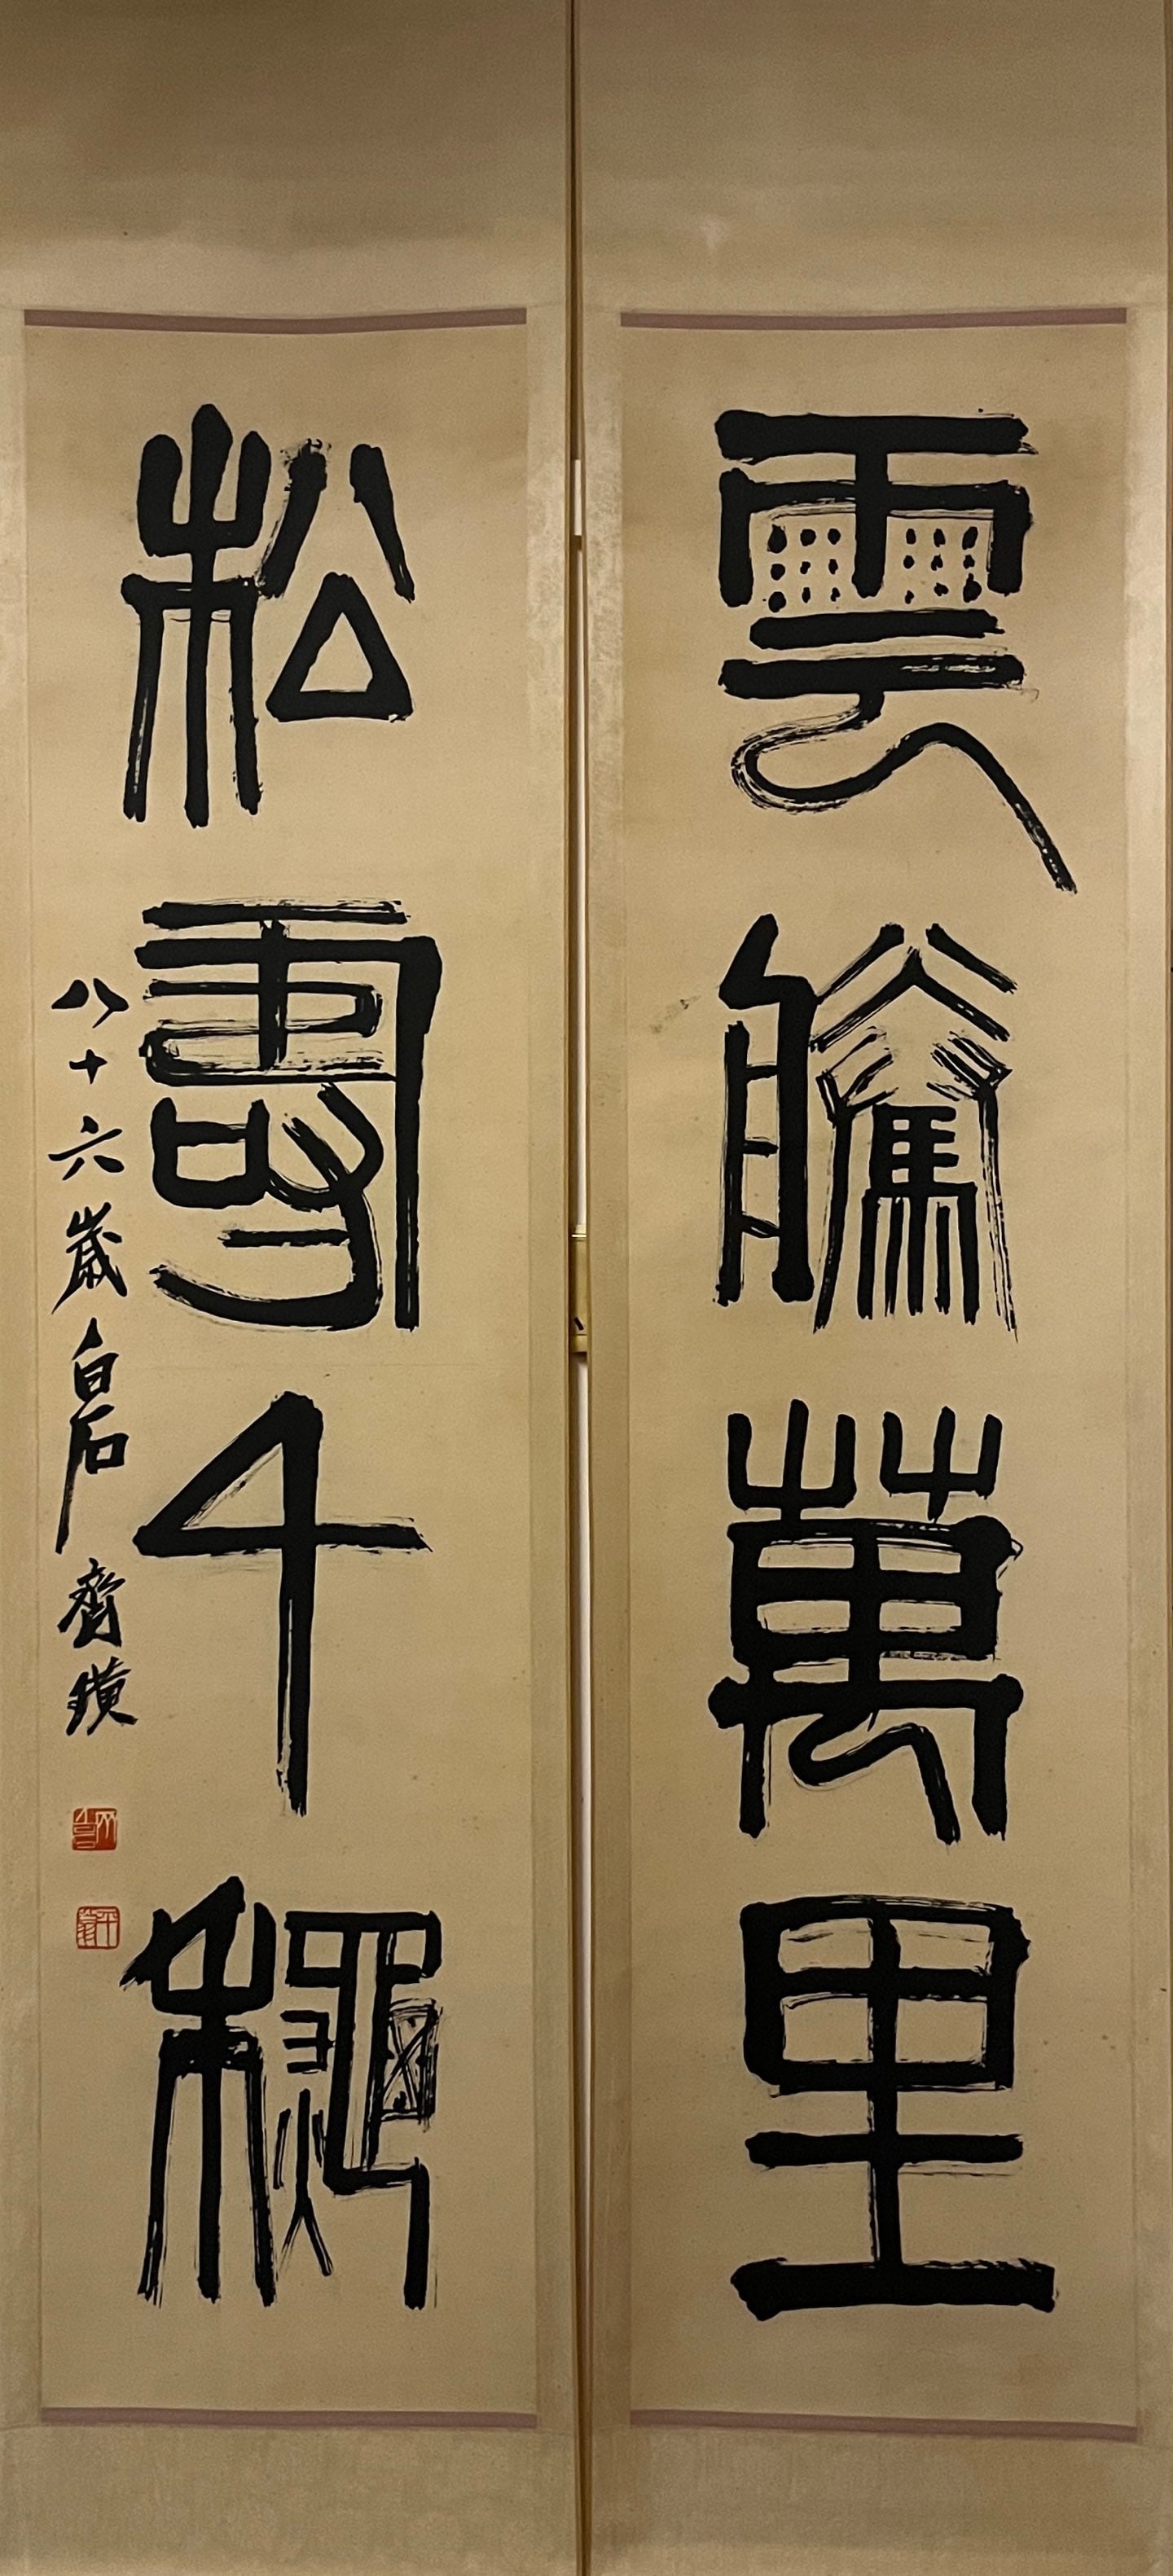 雲騰萬里
松壽千龝
八十六歲白石齊璜